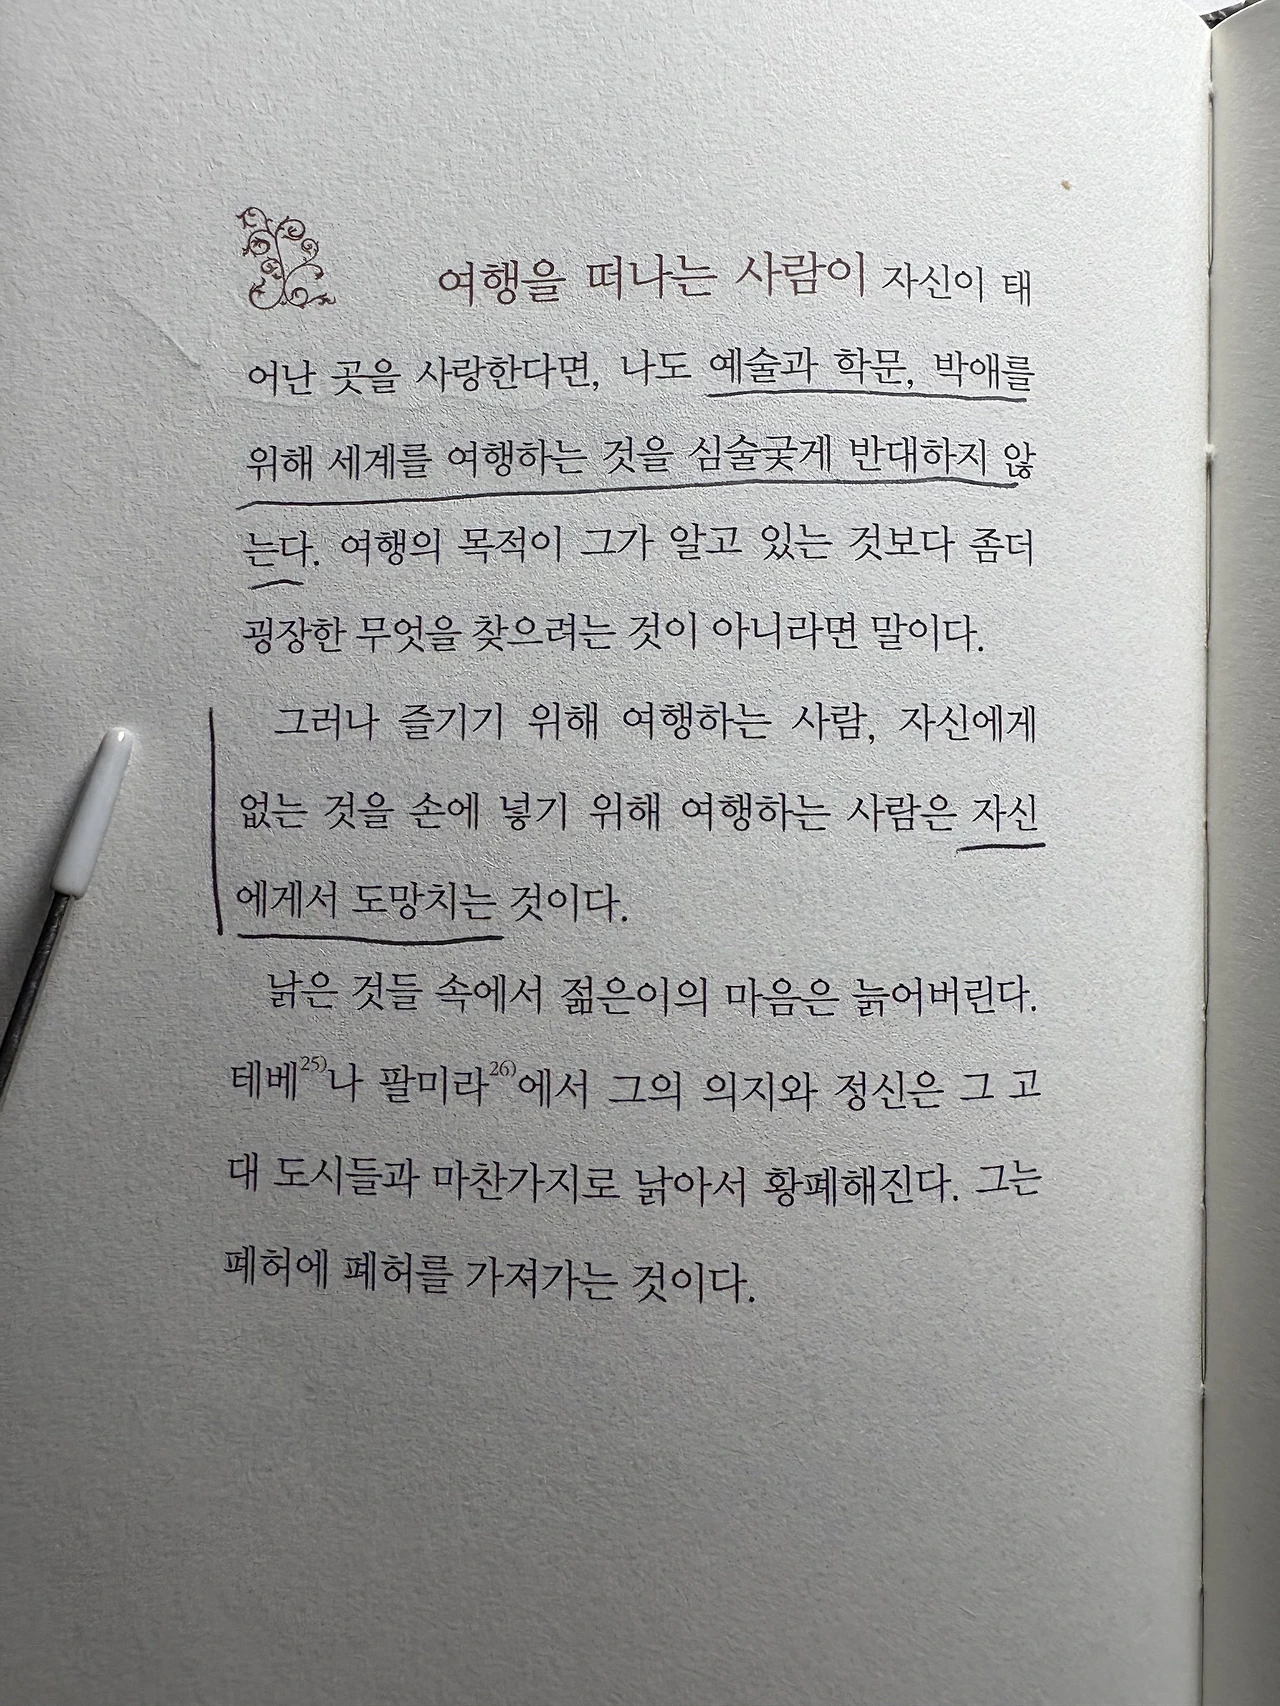 여행을 떠나는 사람이 자신이 태
어난 곳을 사랑한다면, 나도 예술과 학문, 박애를
위해 세계를 여행하는 것을 심술궂게 반대하지 않
는다. 여행의 목적이 그가 알고 있는 것보다 좀더
굉장한 무엇을 찾으려는 것이 아니라면 말이다.
그러나 즐기기 위해 여행하는 사람, 자신에게
없는 것을 손에 넣기 위해 여행하는 사람은 자신
에게서 도망치는 것이다.
낡은 것들 속에서 젊은이의 마음은 늙어버린다.
테베25)나 팔미라26)에서 그의 의지와 정신은 그 고
대 도시들과 마찬가지로 낡아서 황폐해진다. 그는
폐허에 폐허를 가져가는 것이다.